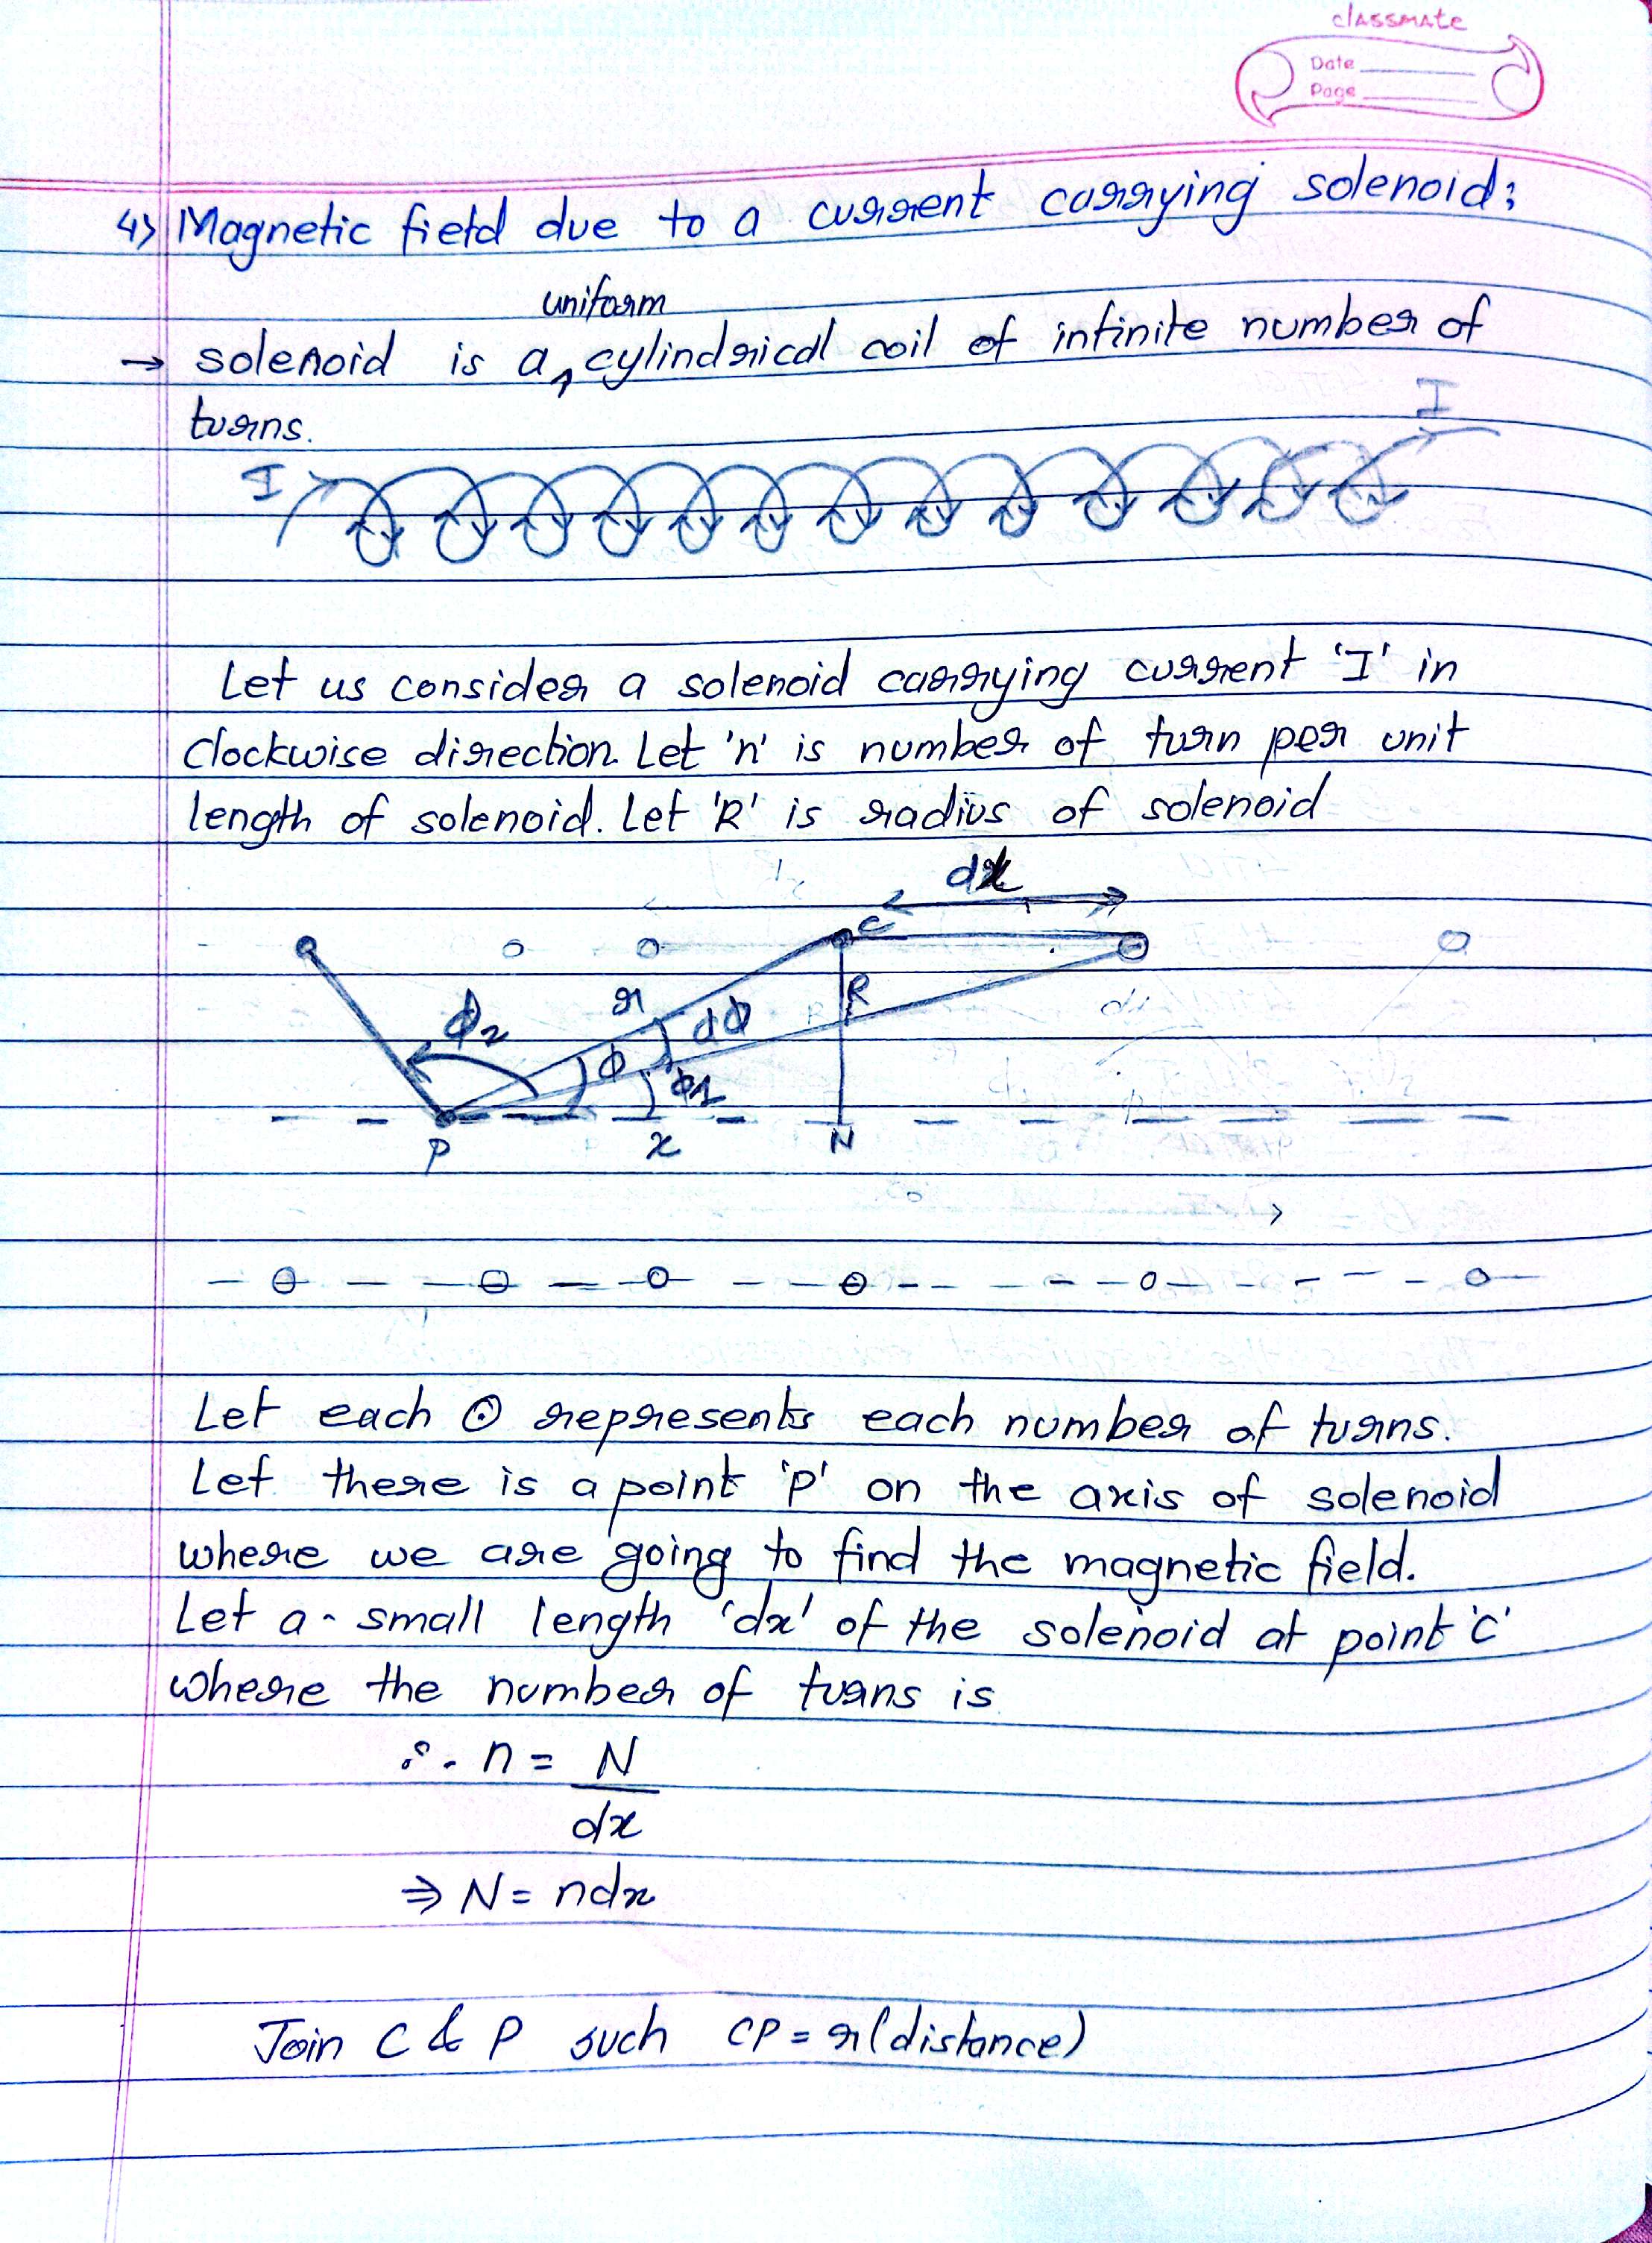 classmate
Date
Page
4) Magnetic field due to a current carrying solenoid:
uniform
→ solenoid is a cylindrical coil of infinite number of
turns.
I
I
Let us consider a solenoid carrying current 'I' in
clockwise direction. Let 'n' is number of turn per unit
length of solenoid. Let 'R' is radius of solenoid
dx
C
r
R
ϕ2
dϕ
ϕ
ϕ1
P
x
N
Let each ⊙ represents each number of turns.
Let there is a point 'P' on the axis of solenoid
where we are going to find the magnetic field.
Let a small length 'dx' of the solenoid at point 'C'
where the number of turns is
∴ n = N
dx
⇒ N = ndx
Join C & P such CP = r (distance)